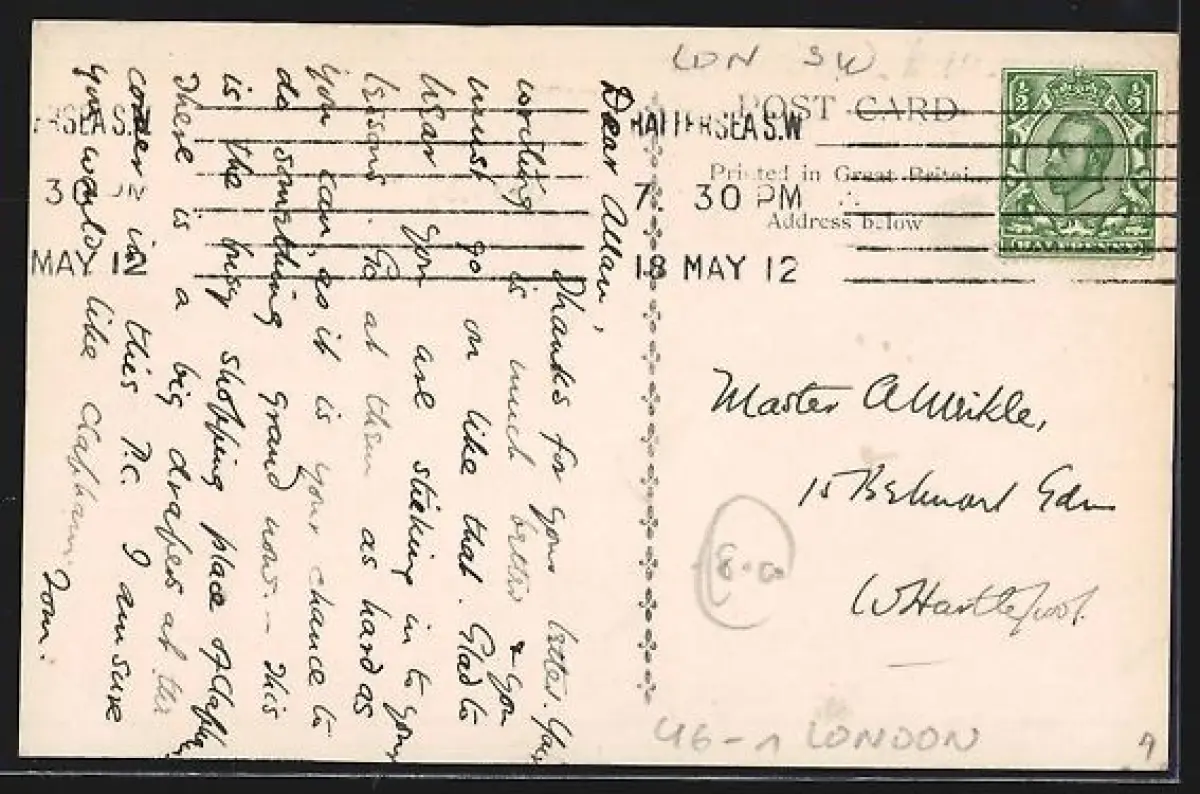 Dear Allan,
Thanks for your letter. Your
writing is much better & you
must go on like that. Glad to
hear you are sticking in to your
lessons. Go at them as hard as
you can, as it is your chance to
do something grand now. - This
is the busy shopping place of Clapham
There is a big drapers at the
corner in this P.C. I am sure
you would like Clapham.
Tom.
LDN SW
POST CARD
Printed in Great Britain
Address below
BATTERSEA S.W
7. 30 PM
18 MAY 12
ERSEA S.W
30 PM
MAY 12
½ ½
HALFPENNY
Master A Meikle,
15 Gdns
W Hartlepool.
8.00
46-1 LONDON